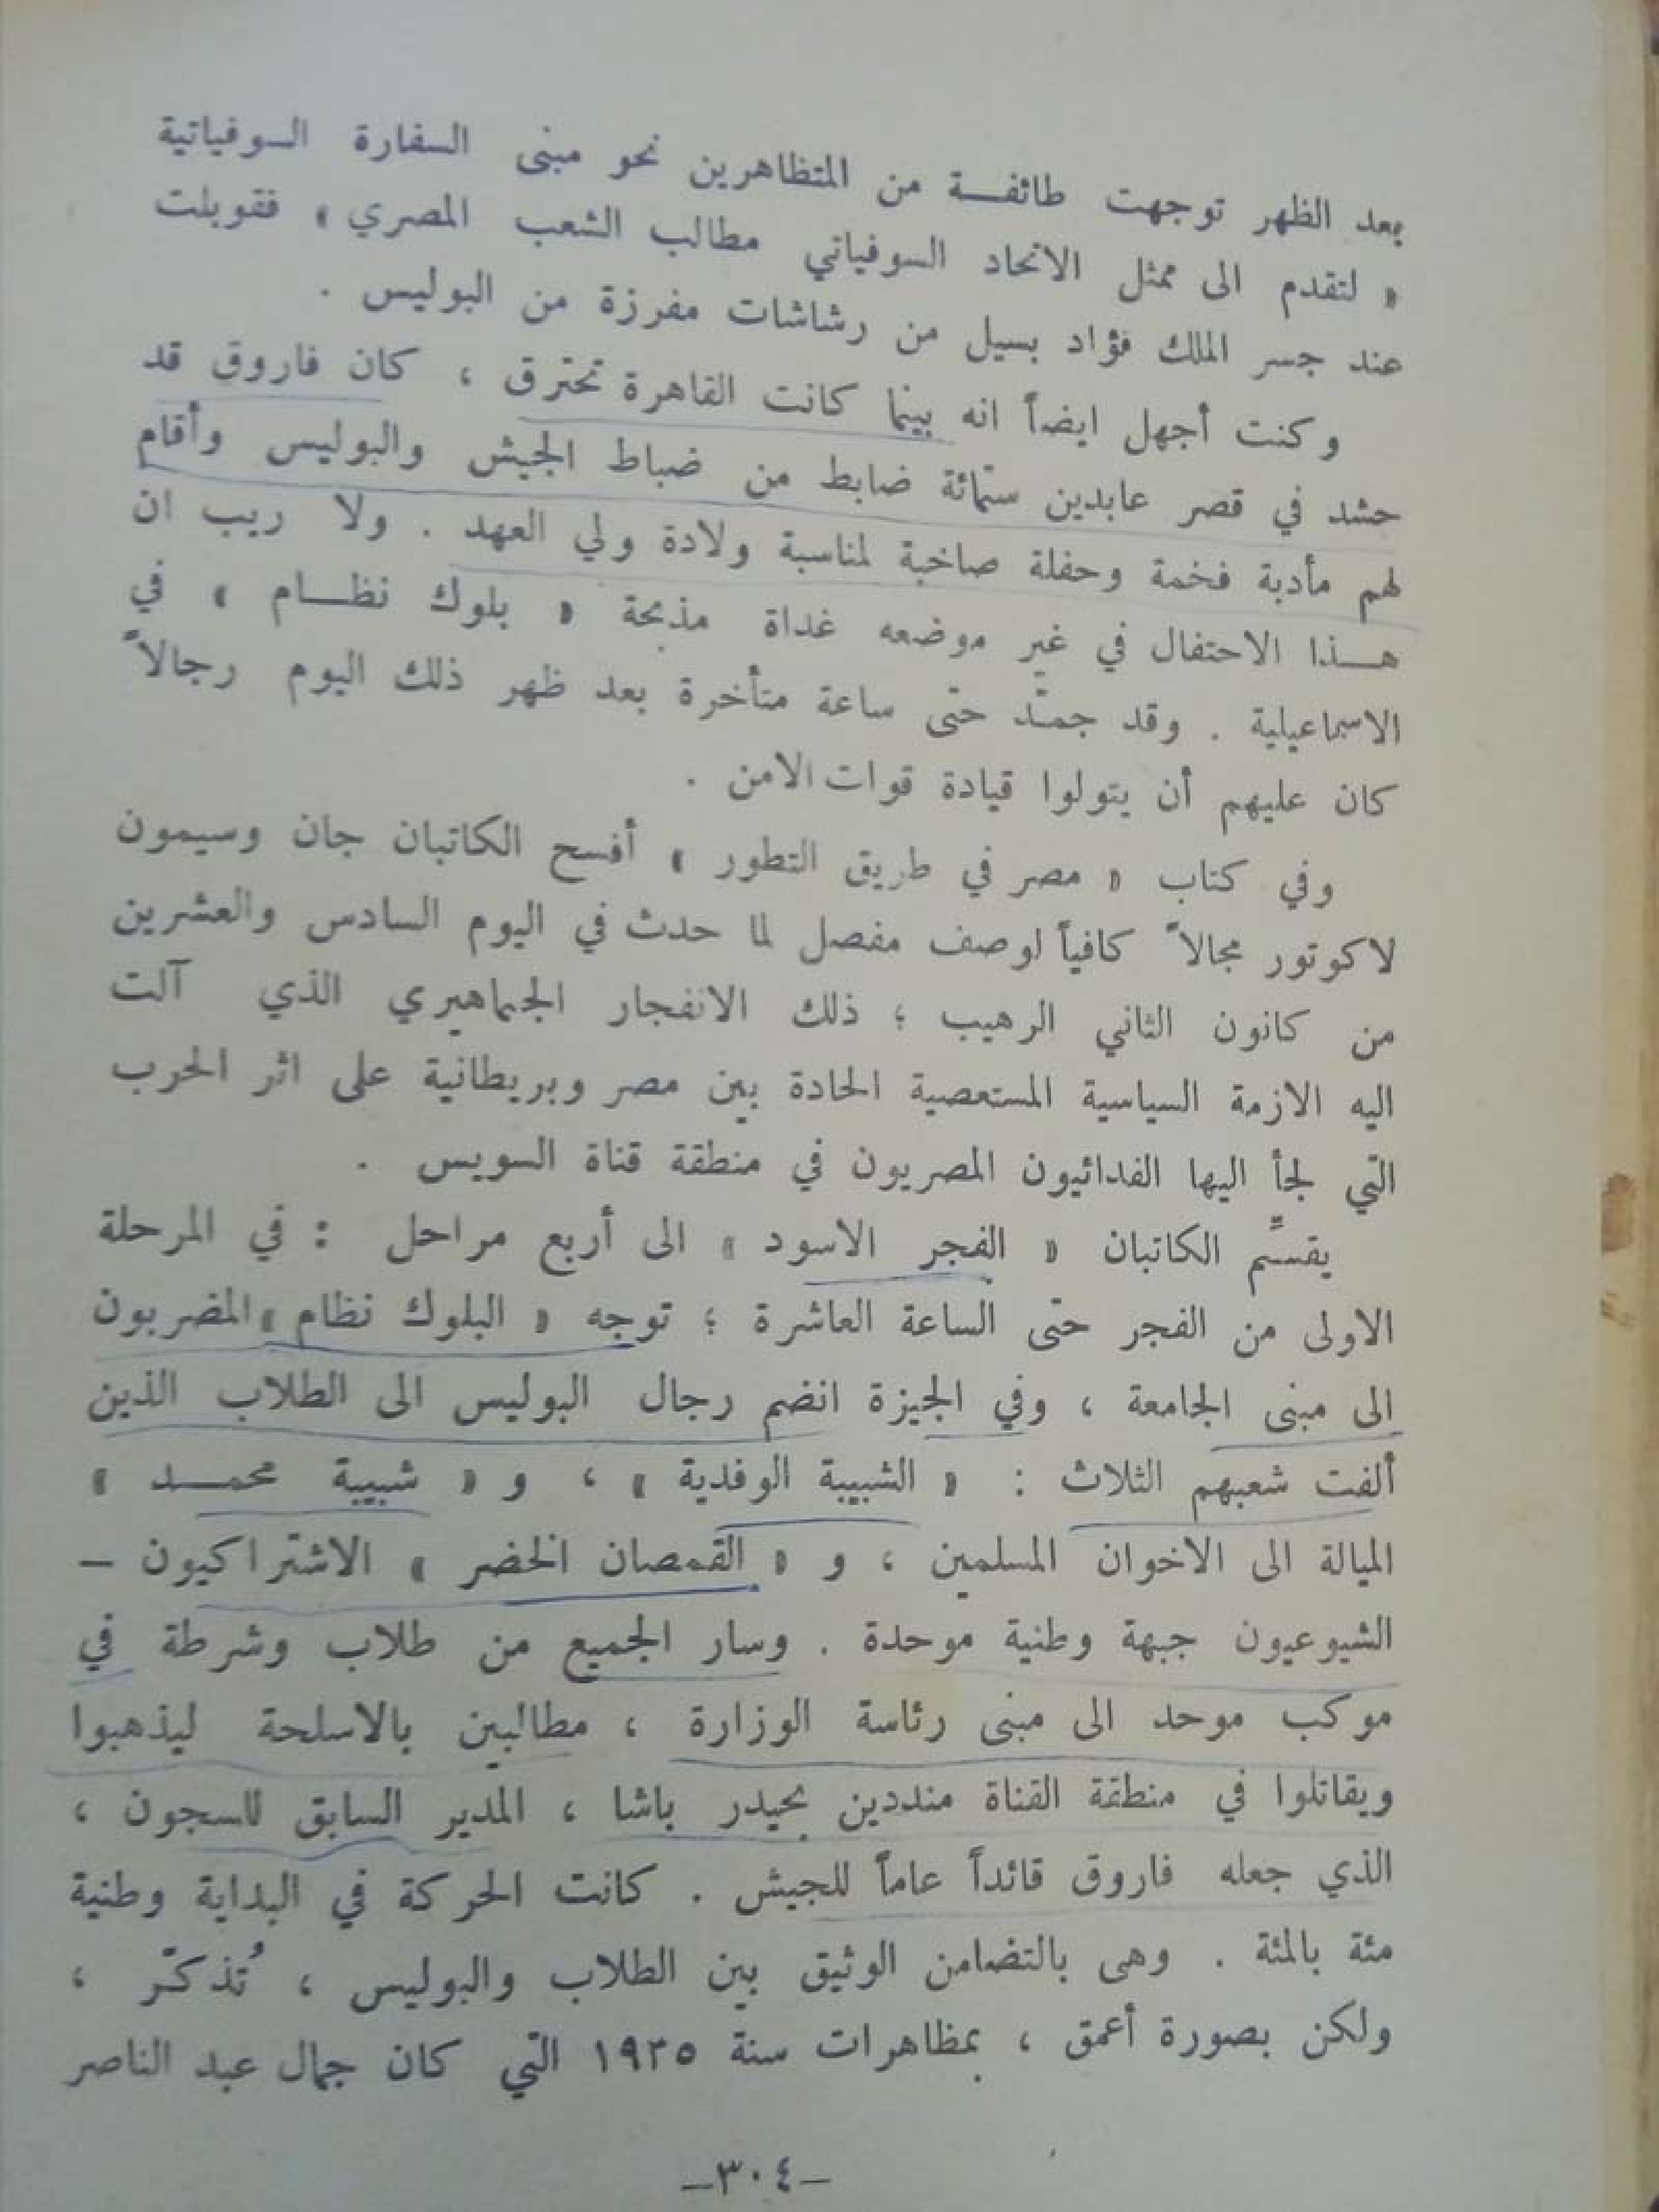 بعد الظهر توجهت طائفــة من المتظاهرين نحو مبنى السفارة السوفياتية
« لتقدم الى ممثل الاتحاد السوفياتي مطالب الشعب المصري » فقوبلت
عند جسر الملك فؤاد بسيل من رشاشات مفرزة من البوليس .
وكنت أجهل ايضاً انه بينما كانت القاهرة تحترق ، كان فاروق قد
حشد في قصر عابدين ستمائة ضابط من ضباط الجيش والبوليس وأقام
لهم مأدبة فخمة وحفلة صاخبة لمناسبة ولادة ولي العهد . ولا ريب ان
هــذا الاحتفال في غير موضعه غداة مذبحة « بلوك نظــام » في
الاسماعيلية . وقد جمّد حتى ساعة متأخرة بعد ظهر ذلك اليوم رجالاً
كان عليهم أن يتولوا قيادة قوات الامن .
وفي كتاب « مصر في طريق التطور » أفسح الكاتبان جان وسيمون
لاكوتور مجالاً كافياً لوصف مفصل لما حدث في اليوم السادس والعشرين
من كانون الثاني الرهيب ؛ ذلك الانفجار الجماهيري الذي آلت
اليه الازمة السياسية المستعصية الحادة بين مصر وبريطانية على اثر الحرب
التي لجأ اليها الفدائيون المصريون في منطقة قناة السويس .
يقسِّم الكاتبان « الفجر الاسود » الى أربع مراحل : في المرحلة
الاولى من الفجر حتى الساعة العاشرة ؛ توجه « البلوك نظام » المضربون
الى مبنى الجامعة ، وفي الجيزة انضم رجال البوليس الى الطلاب الذين
ألفت شعبهم الثلاث : « الشبيبة الوفدية » ، و « شبيبة محمــد »
الميالة الى الاخوان المسلمين ، و « القمصان الخضر » الاشتراكيون –
الشيوعيون جبهة وطنية موحدة . وسار الجميع من طلاب وشرطة في
موكب موحد الى مبنى رئاسة الوزارة ، مطالبين بالاسلحة ليذهبوا
ويقاتلوا في منطقة القناة منددين بحيدر باشا ، المدير السابق للسجون ،
الذي جعله فاروق قائداً عاماً للجيش . كانت الحركة في البداية وطنية
مئة بالمئة . وهى بالتضامن الوثيق بين الطلاب والبوليس ، تُذكّر ،
ولكن بصورة أعمق ، بمظاهرات سنة ١٩٣٥ التي كان جمال عبد الناصر
–٣٠٤–